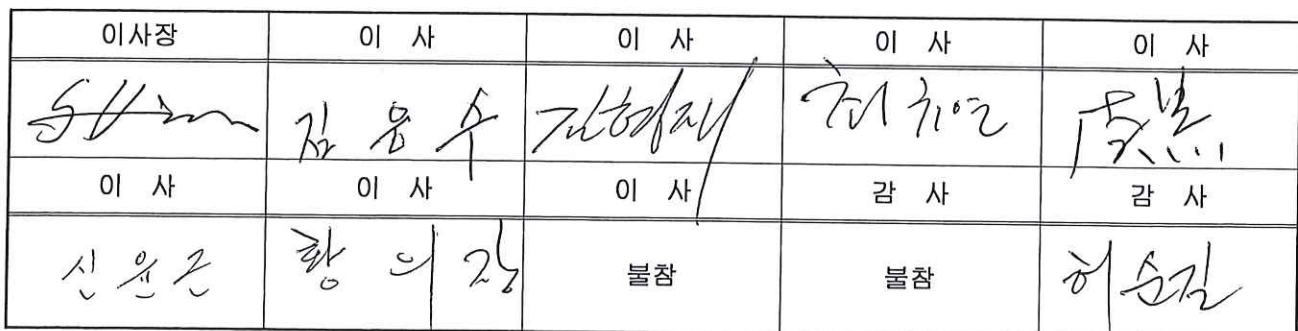 이사장 이 사 이 사 이 사 이 사
김용수 김형재
이 사 이 사 이 사 감 사 감 사
신윤근 황의장 불참 불참 허순길